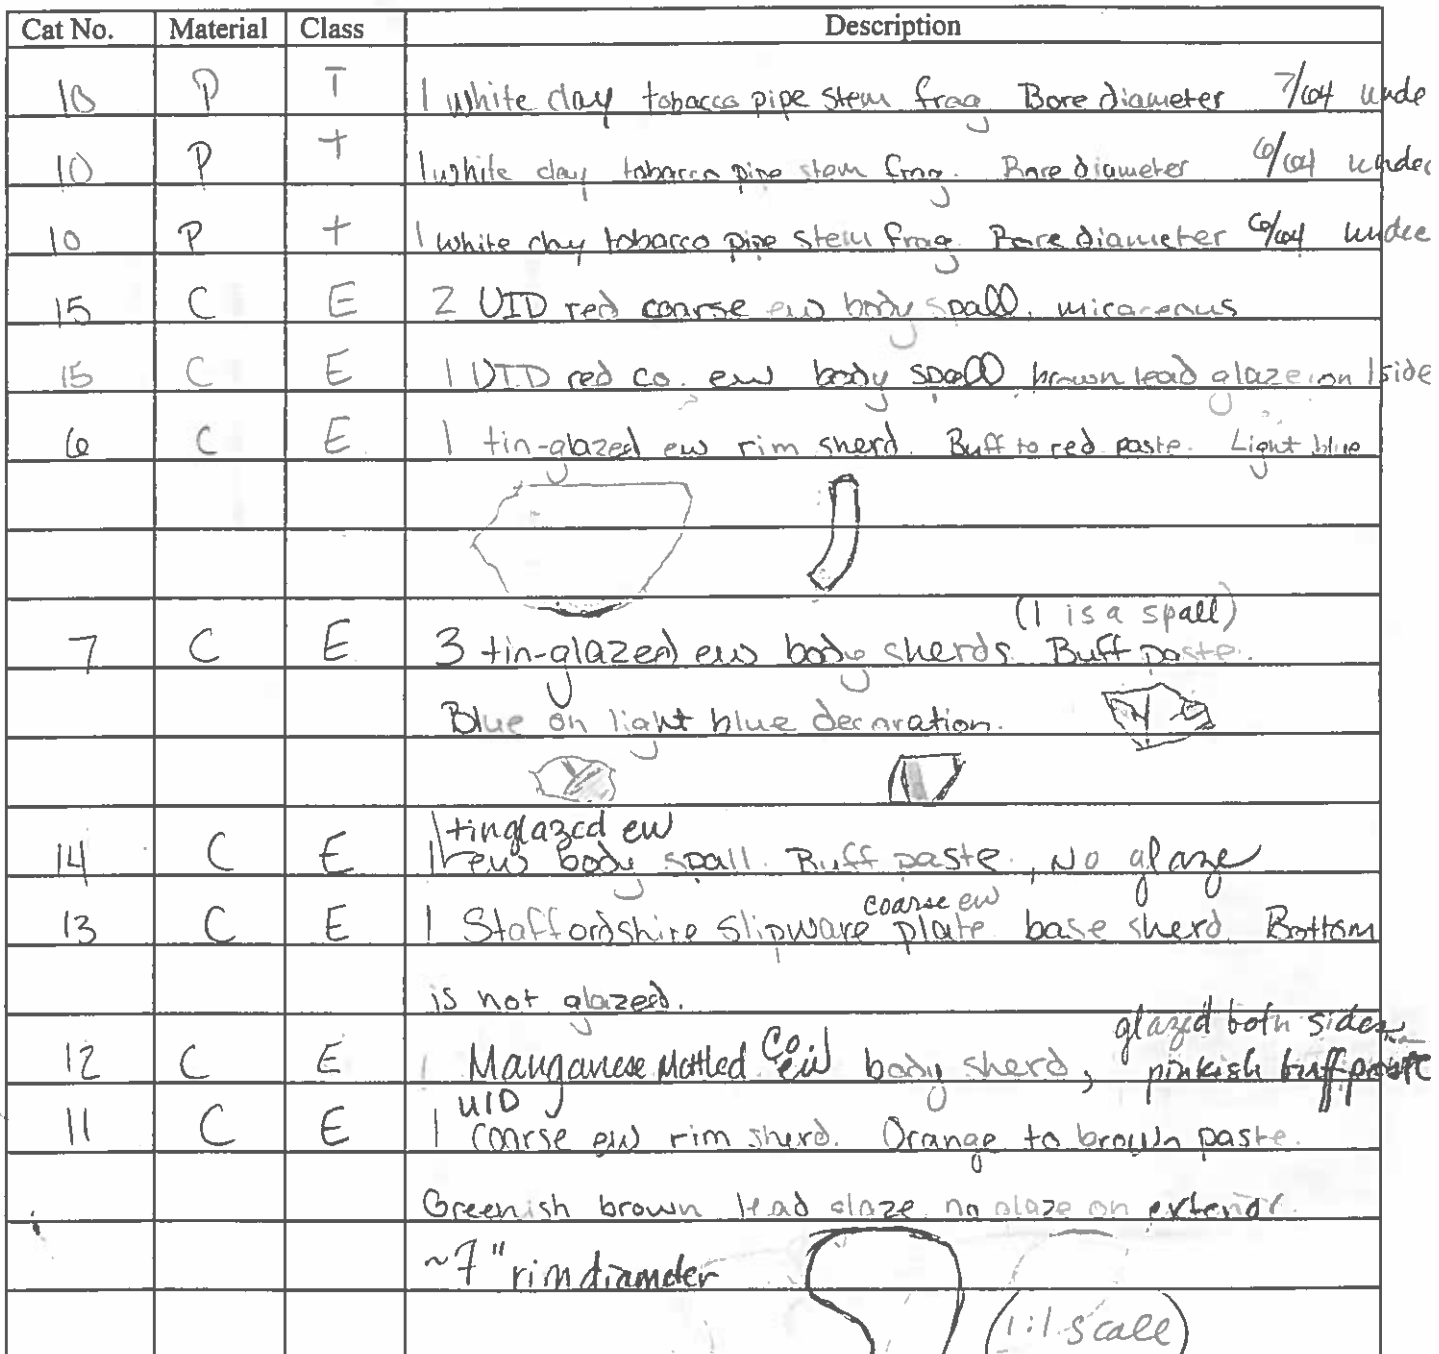 Cat No. Material Class Description
10 P T 1 white clay tobacco pipe stem frag Bore diameter 7/64 unde
10 P T 1 white clay tobacco pipe stem frag. Bore diameter 6/64 undec
10 P T 1 white clay tobacco pipe stem frag. Bore diameter 6/64 undec
15 C E 2 UID red coarse ew body spall, micaceous
15 C E 1 UID red co. ew body spall brown lead glaze on 1 side
6 C E 1 tin-glazed ew rim sherd. Buff to red paste. Light blue
(1 is a spall)
7 C E 3 tin-glazed ew body sherds Buff paste.
Blue on light blue decoration.
tinglazed ew
14 C E 1 ew body spall. Buff paste, No glaze
coarse ew
13 C E 1 Staffordshire Slipware plate base sherd. Bottom
is not glazed.
glazed both sides
12 C E 1 Manganese Mottled co. ew body sherd, pinkish buff paste
UID
11 C E 1 coarse ew rim sherd. Orange to brown paste.
Greenish brown lead glaze no glaze on exterior.
~7" rim diameter
(1:1 scale)